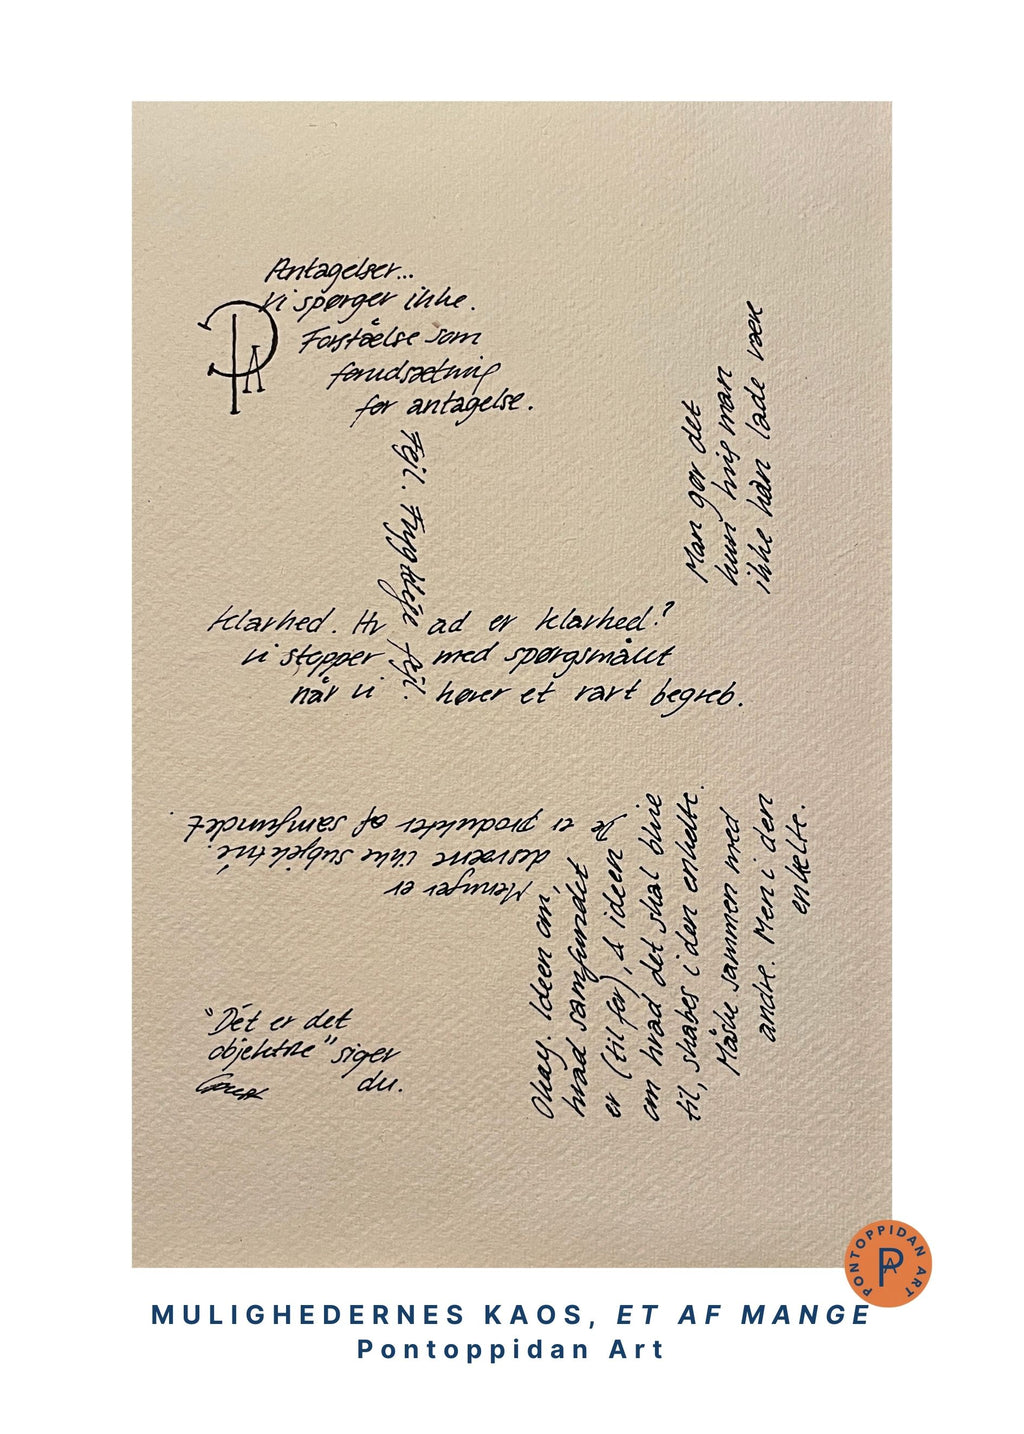 Antagelser...
Vi spørger ikke.
Forståelse som
forudsætning
for antagelse.
PA
Fejl. Frygtelige fejl.
Man gør det
kun hvis man
ikke kan lade være
Klarhed. Hvad er klarhed?
Vi stopper med spørgsmålet
når vi hører et rart begreb.
Meninger er
desværre ikke subjektive.
De er produkter af samfundet.
Okay. Ideen om,
hvad samfundet
er (til for), & ideen
om hvad det skal blive
til, skabes i den enkelte.
Måske sammen med
andre. Men i den
enkelte.
"Dét er det
objektive" siger
du.
PONTOPPIDAN ART
PA
MULIGHEDERNES KAOS, ET AF MANGE
Pontoppidan Art